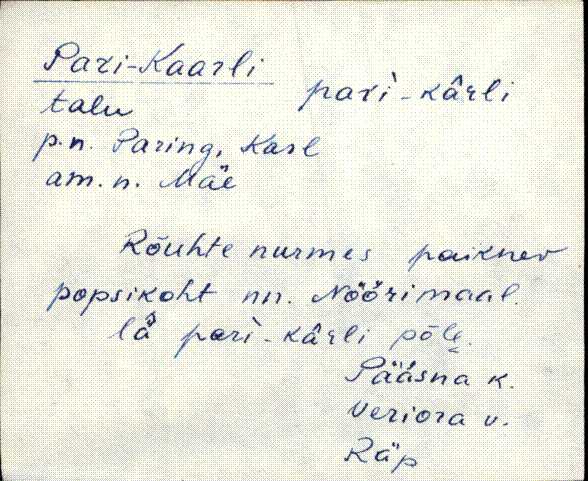 Pari-Kaarli pari̇̀-kâ̄rli
talu
p.n. Paring, Karl
am.n. Mäe
Rõuhte nurmes paiknev
popsikoht nn. Nöörimaal.
lǟ pari̇̀-kâ̄rli põlẹ.
Pääsna k.
Veriora v.
Räp